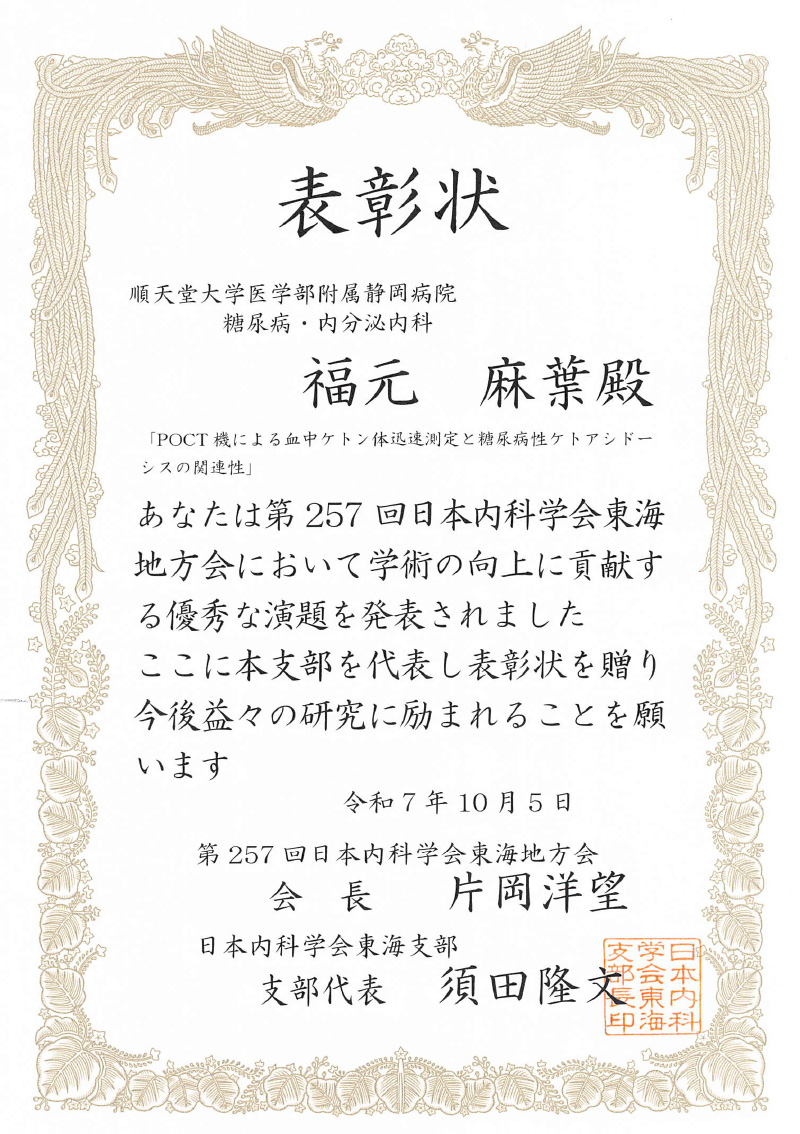 表彰状
順天堂大学医学部附属静岡病院
糖尿病・内分泌内科
福元　麻葉殿
「POCT 機による血中ケトン体迅速測定と糖尿病性ケトアシドー
シスの関連性」
あなたは第 257 回日本内科学会東海
地方会において学術の向上に貢献す
る優秀な演題を発表されました
ここに本支部を代表し表彰状を贈り
今後益々の研究に励まれることを願
います
令和 7 年 10 月 5 日
第 257 回日本内科学会東海地方会
会　長　片岡洋望
日本内科学会東海支部
支部代表　須田隆文
日本内科
学会東海
支部長印